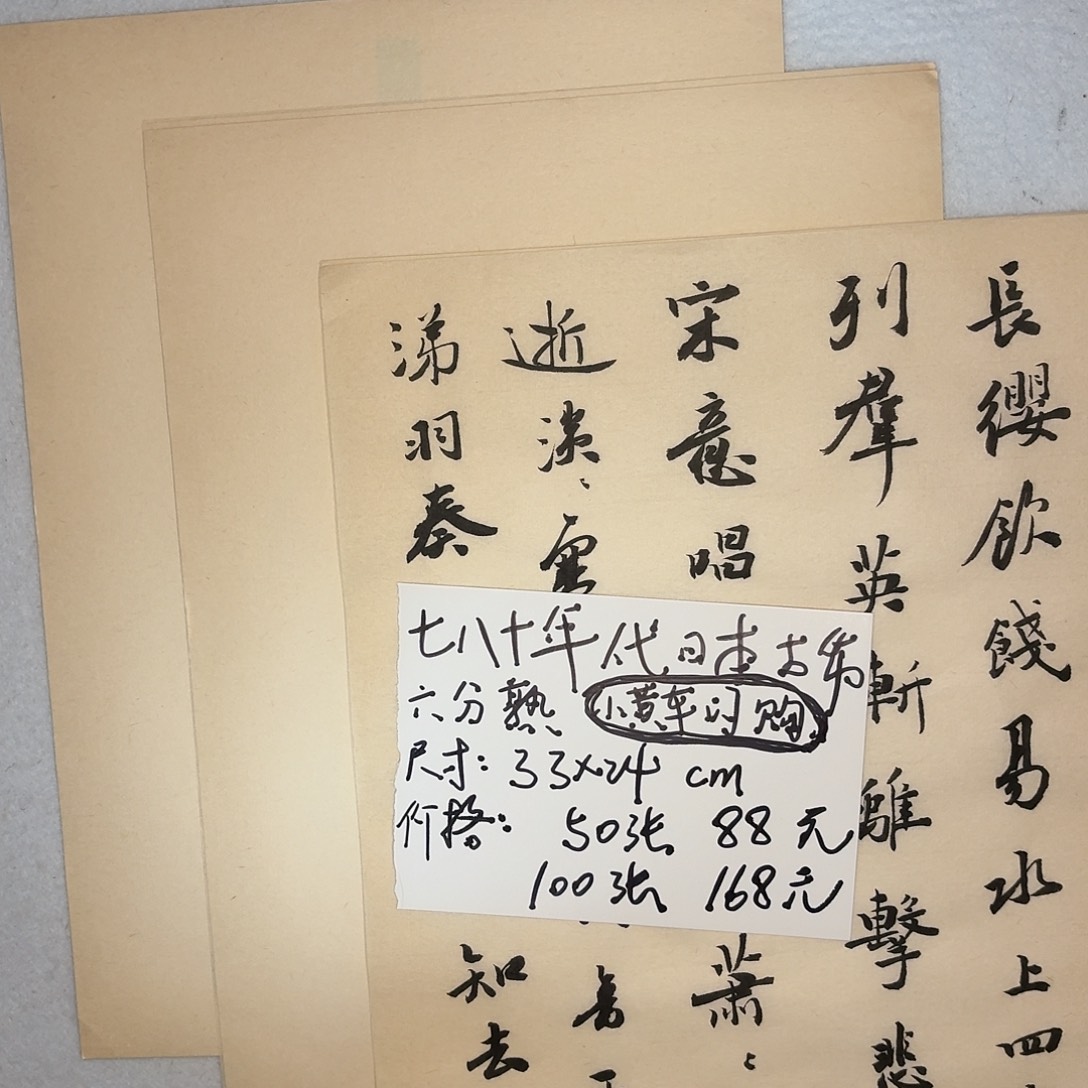 長纓飲餞易水上四
列羣英漸離擊悲
宋意唱
蕭〻
逝淡〻
音
涕羽奏
知去
七八十年代日本古
六分熟 小黄车闪购
尺寸:33x24 cm
价格: 50张 88元
100张 168元